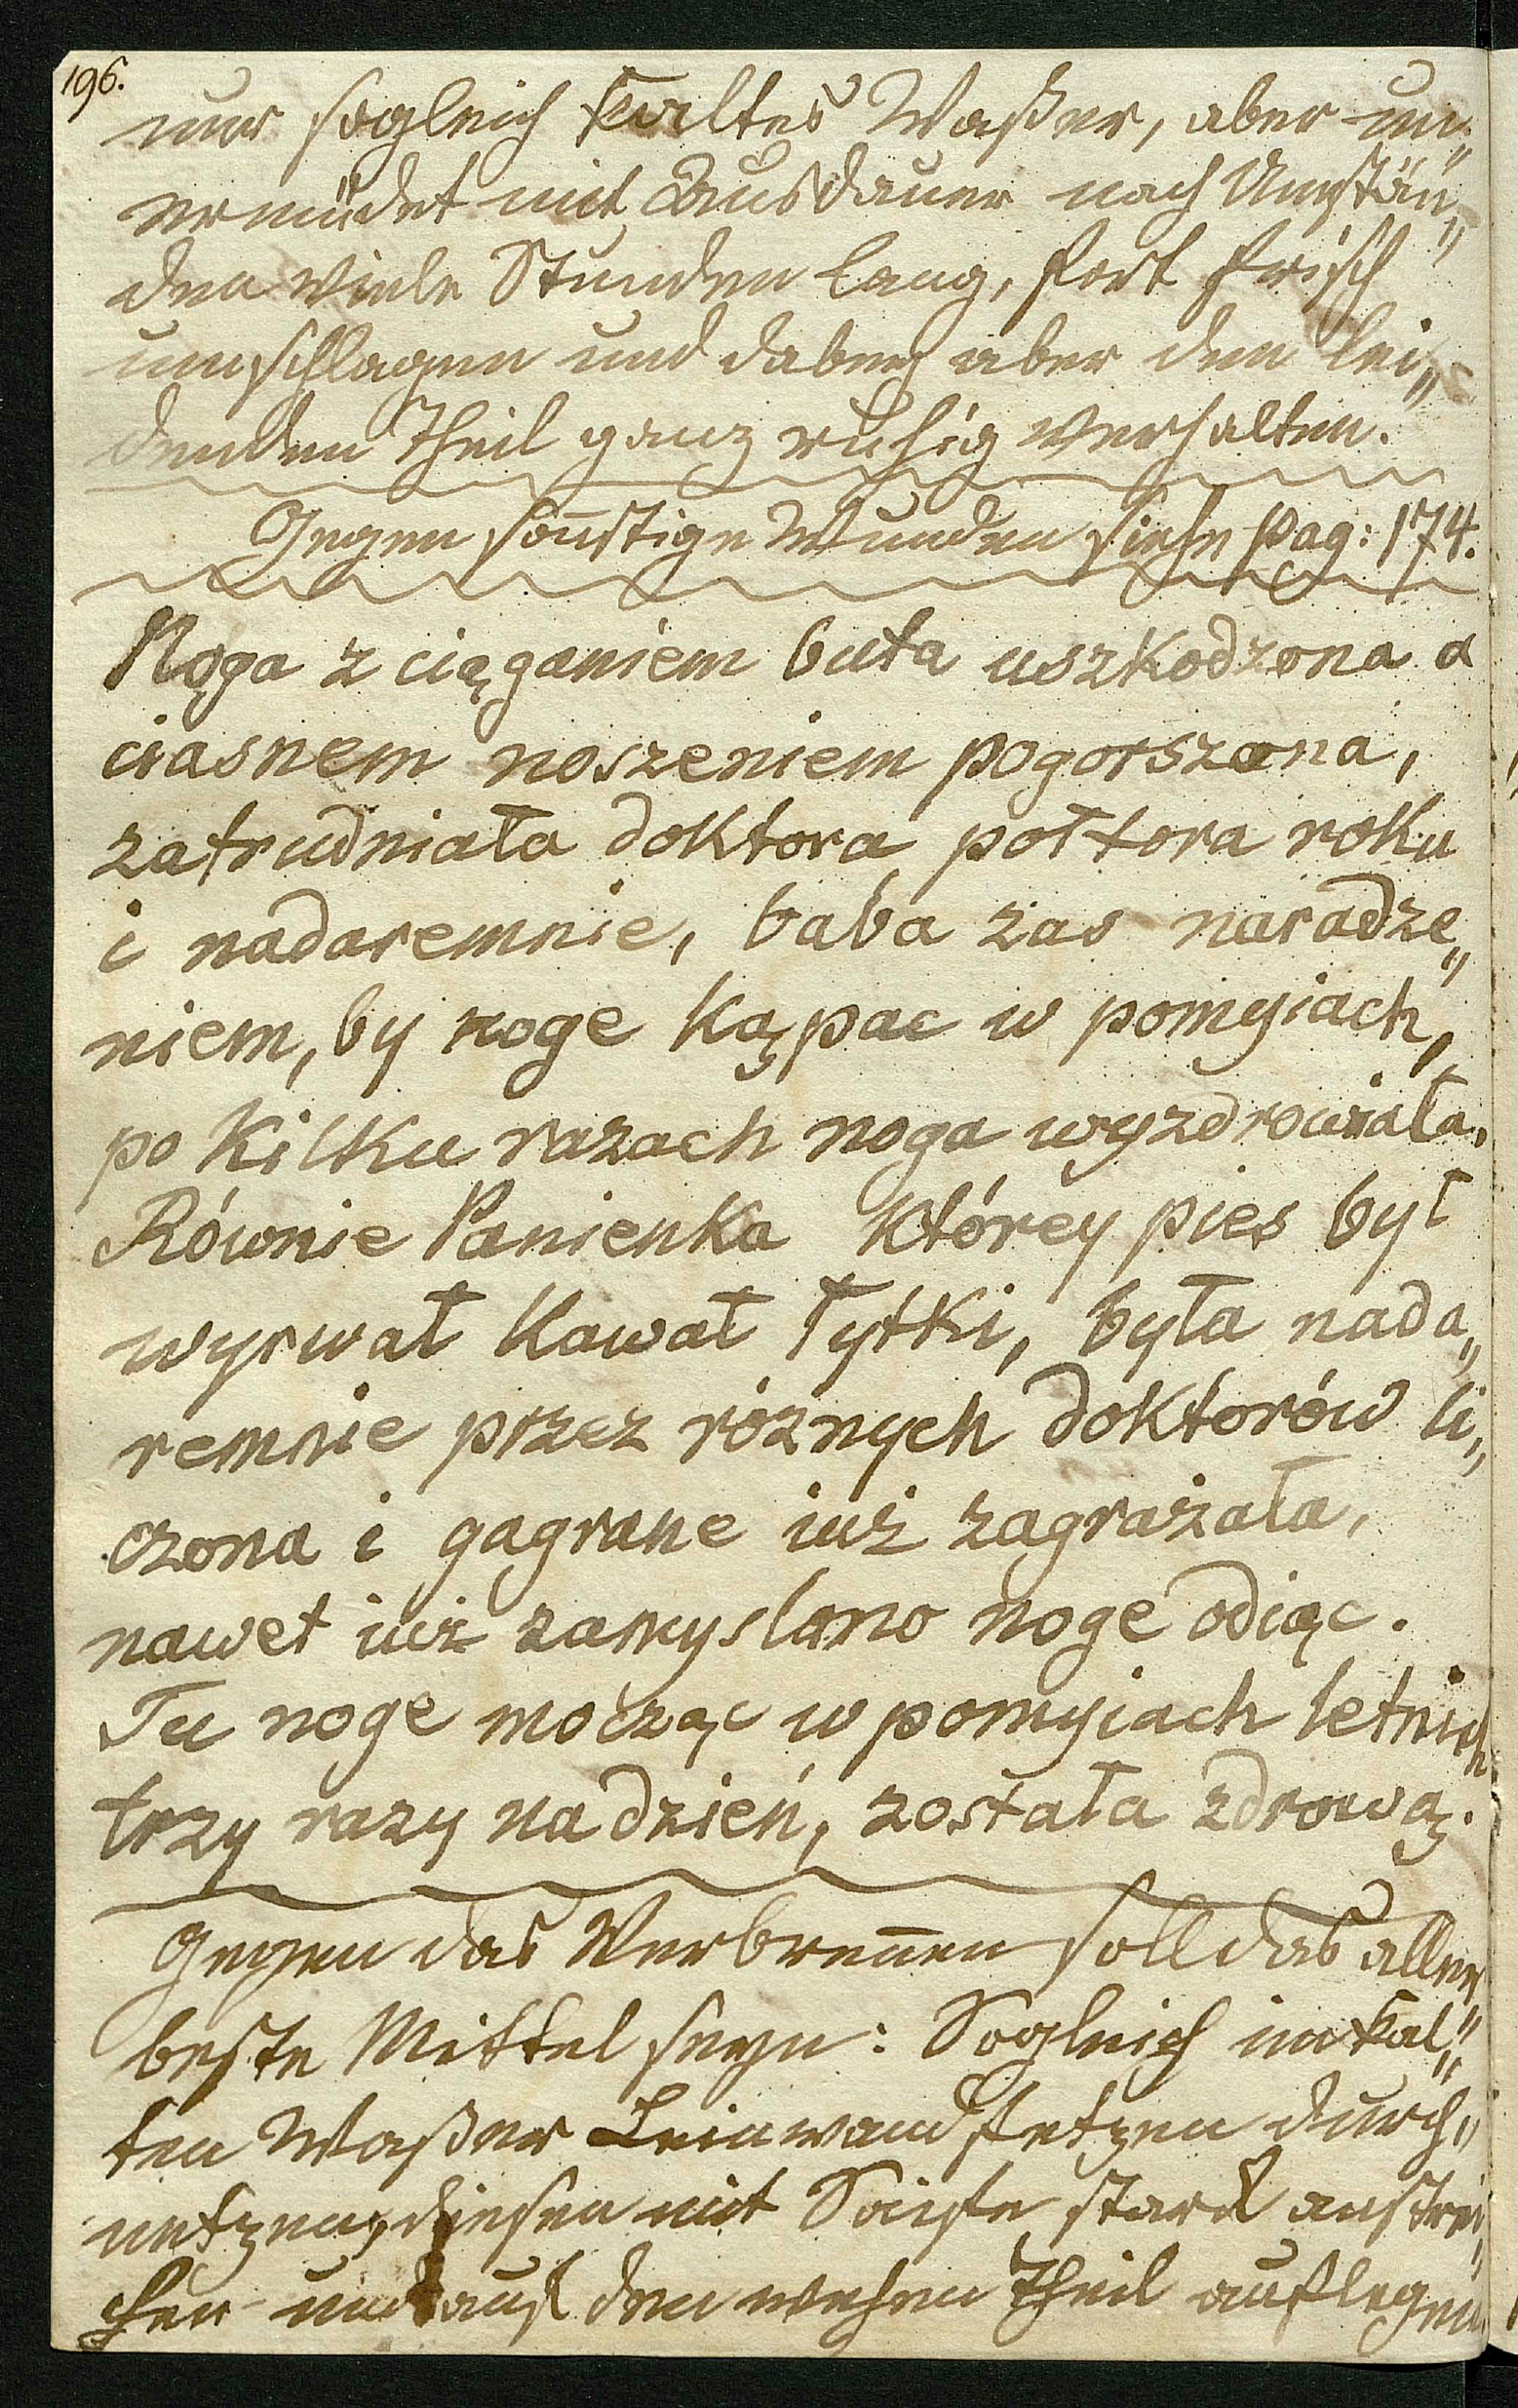 196.
nur sogleich kaltes Waßer, aber un„
ermüdet mit Ausdauer nach Umstän„
den viele Stunden lang, fort frisch
umschlagen und dabey aber den lei„
denden Theil ganz ruhig verhalten.
Gegen sonstige Wunden siehe pag: 174.
Noga z ciąganiem buta uszkodzona a
ciasnem noszeniem pogorszona,
zatrudniała doktora połtora roku
i nadaremnie, baba zas naradze„
niem, by noge kąpac w pomyiach,
po kilku razach noga wyzdrowiała.
Równie Panienka którey pies był
wyrwał kawał łytki, była nada„
remnie przez róznych doktorów li„
czona i gagrane iuż zagrażała,
nawet iuż zamyslano noge odiąc.
Tu noge mocząc w pomyiach letnich
trzy razy na dzień, została zdrową.
Gegen das Verbrennen soll das aller
beste Mittel seyn: Sogleich im kal„
ten Waßer Leinwandfetzen durch„
netzen, diesen mit Saife stark anstrei„
chen und auf den wehen Theil auflegen